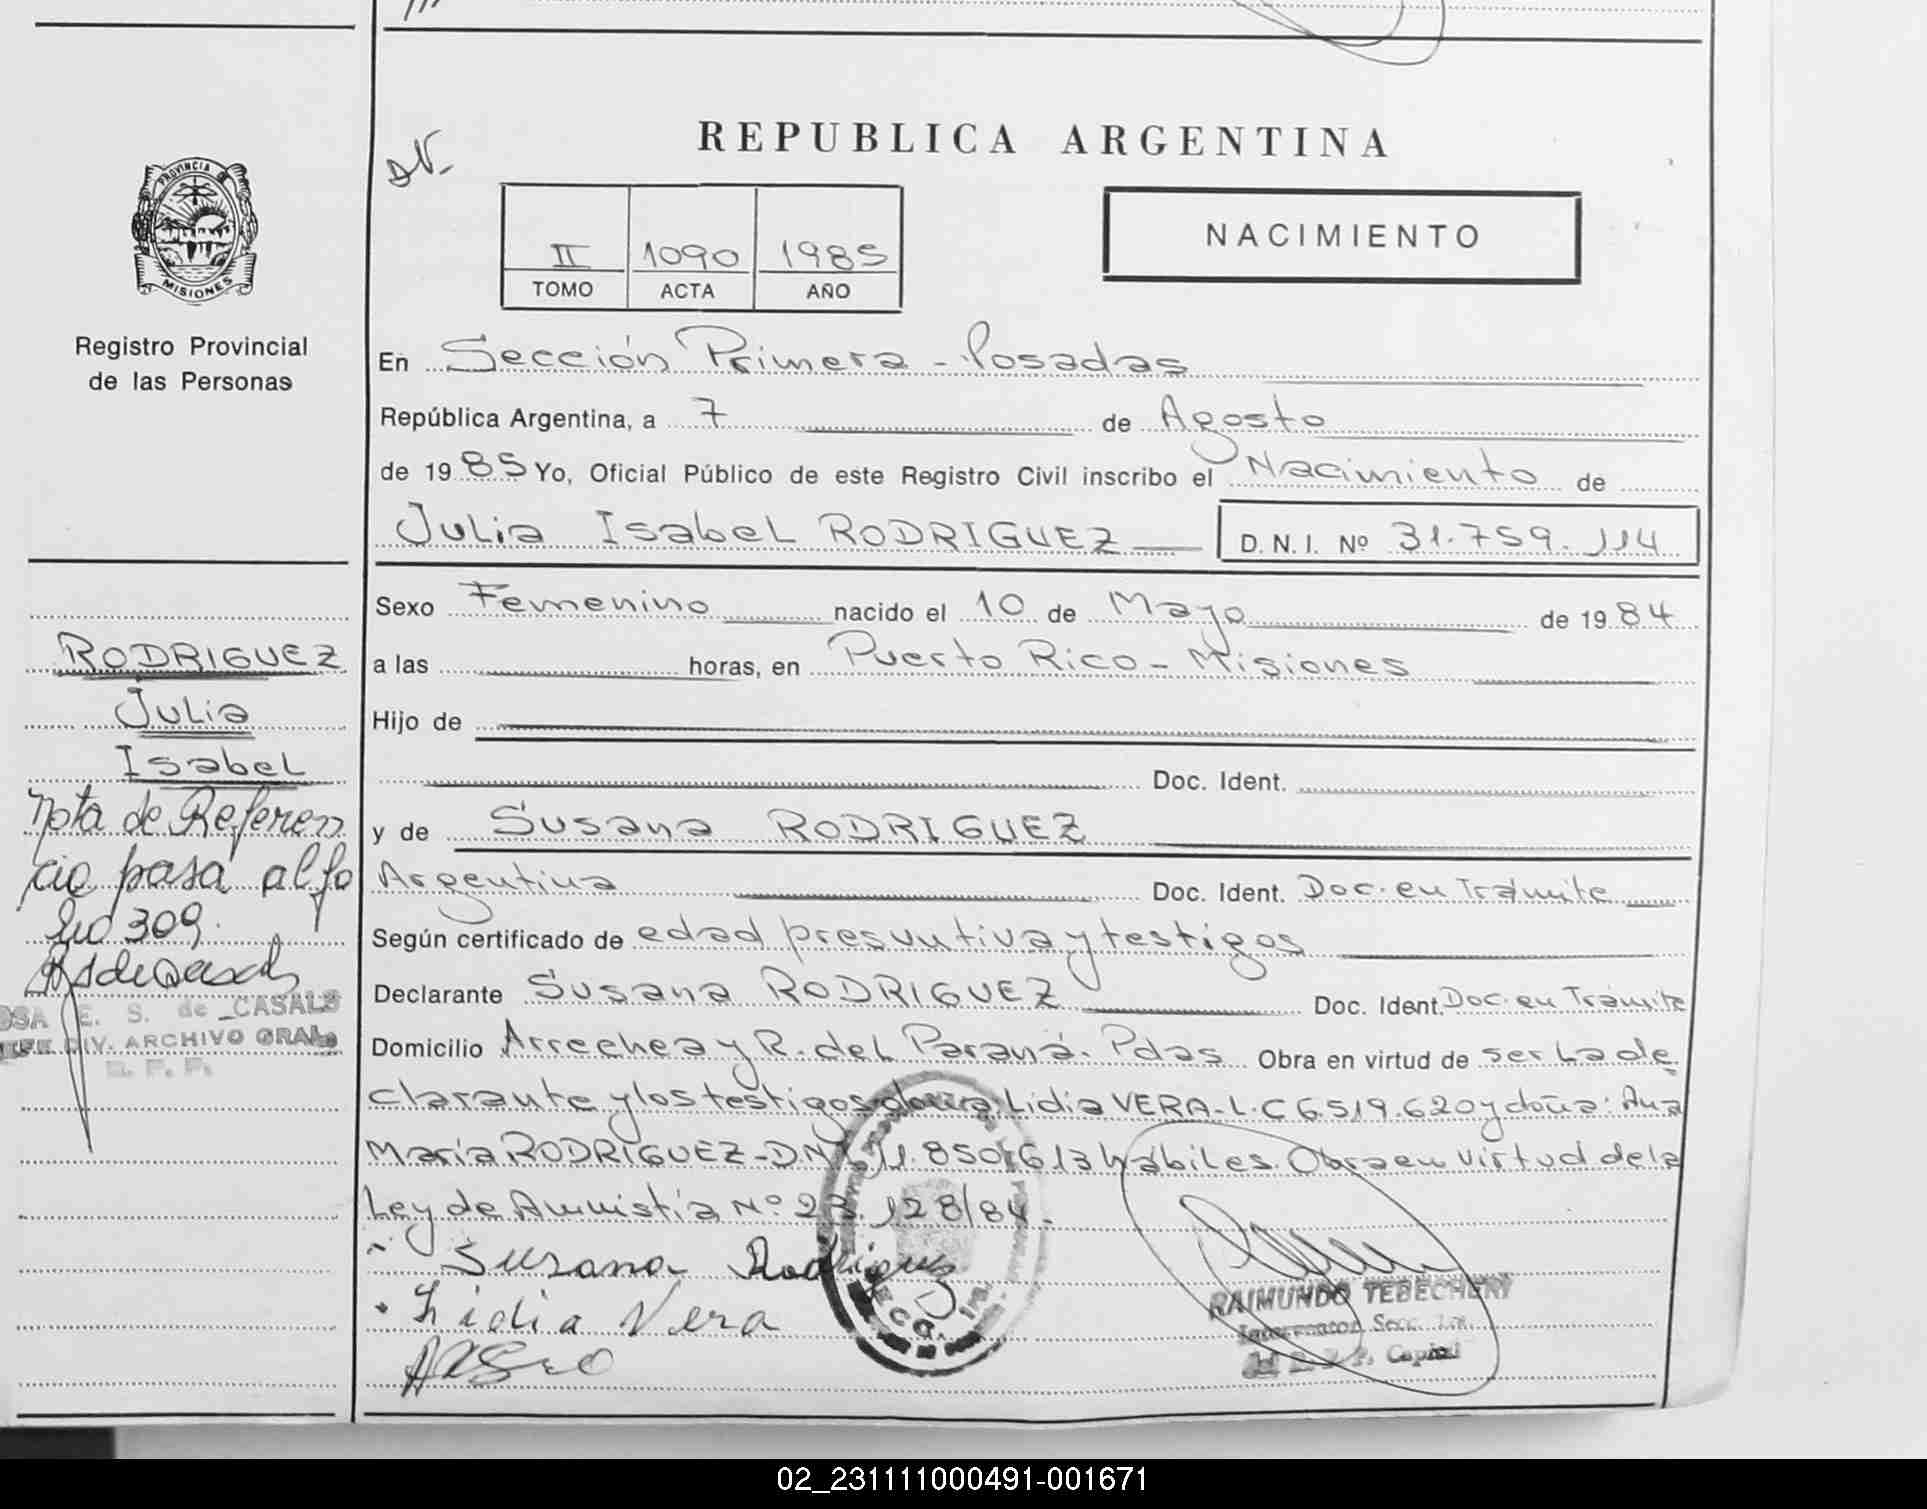 REPUBLICA ARGENTINA
PROVINCIA DE
MISIONES
Registro Provincial
de las Personas
II 1090 1985
TOMO ACTA AÑO
NACIMIENTO
En Sección Primera - Posadas
República Argentina, a 7 de Agosto
de 1985 Yo, Oficial Público de este Registro Civil inscribo el Nacimiento de
Julia Isabel RODRIGUEZ D. N. I. Nº 31.759.114
Sexo Femenino nacido el 10 de Mayo de 1984
a las horas, en Puerto Rico - Misiones
Hijo de
Doc. Ident.
y de Susana RODRIGUEZ
Argentina Doc. Ident. Doc. en Trámite
Según certificado de edad presuntiva y testigos
Declarante Susana RODRIGUEZ Doc. Ident. Doc. en Trámite
Domicilio Arrechea y R. del Paraná. Pdas Obra en virtud de ser la de
clarante y los testigos doña Lidia VERA - L. C 6.519.620 y doña: Ana
María RODRIGUEZ - D.N.I. 11.850.613 hábiles. Obra en virtud de la
Ley de Amnistía Nº 23.128/84.
Susana Rodriguez
Lidia Vera
RAIMUNDO TEBECHERY
Secc. 1ra.
Capital
RODRIGUEZ
Julia
Isabel
Nota de Referen
cia pasa al fo
lio 309.
E. S. de CASALS
JEFE DIV. ARCHIVO GRAL.
R. P. P.
02_231111000491-001671